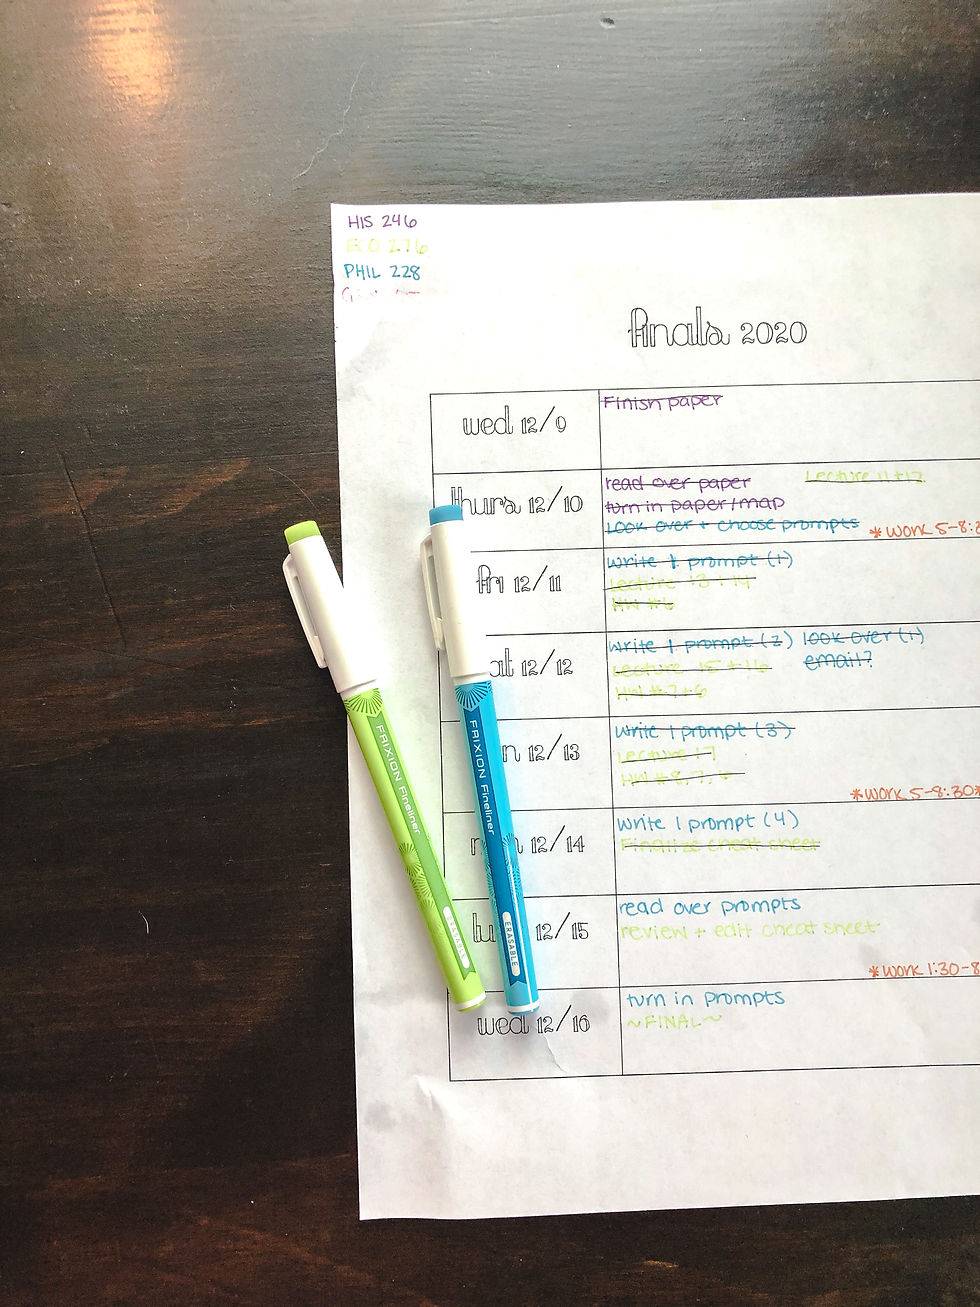 HIS 246
ECO 276
PHIL 228
finals 2020
wed 12/9
Finish paper
thurs 12/10
read over paper
Lecture 11+12
turn in paper/map
look over + choose prompts
*work 5-8:
fri 12/11
write 1 prompt (1)
Lecture 13 + 14
HW #6
at 12/12
write 1 prompt (2)
look over (1)
Lecture 15 + 16
email?
HW # 7+6
n 12/13
write 1 prompt (3)
Lecture 17
HW # 8, 7, 6
*work 5-8:30*
12/14
write 1 prompt (4)
Finalize cheat sheet
tu 12/15
read over prompts
review + edit cheat sheet
*work 1:30-8
wed 12/16
turn in prompts
~FINAL~
FRIXION Fineliner
ERASABLE
FRIXION Fineliner
ERASABLE